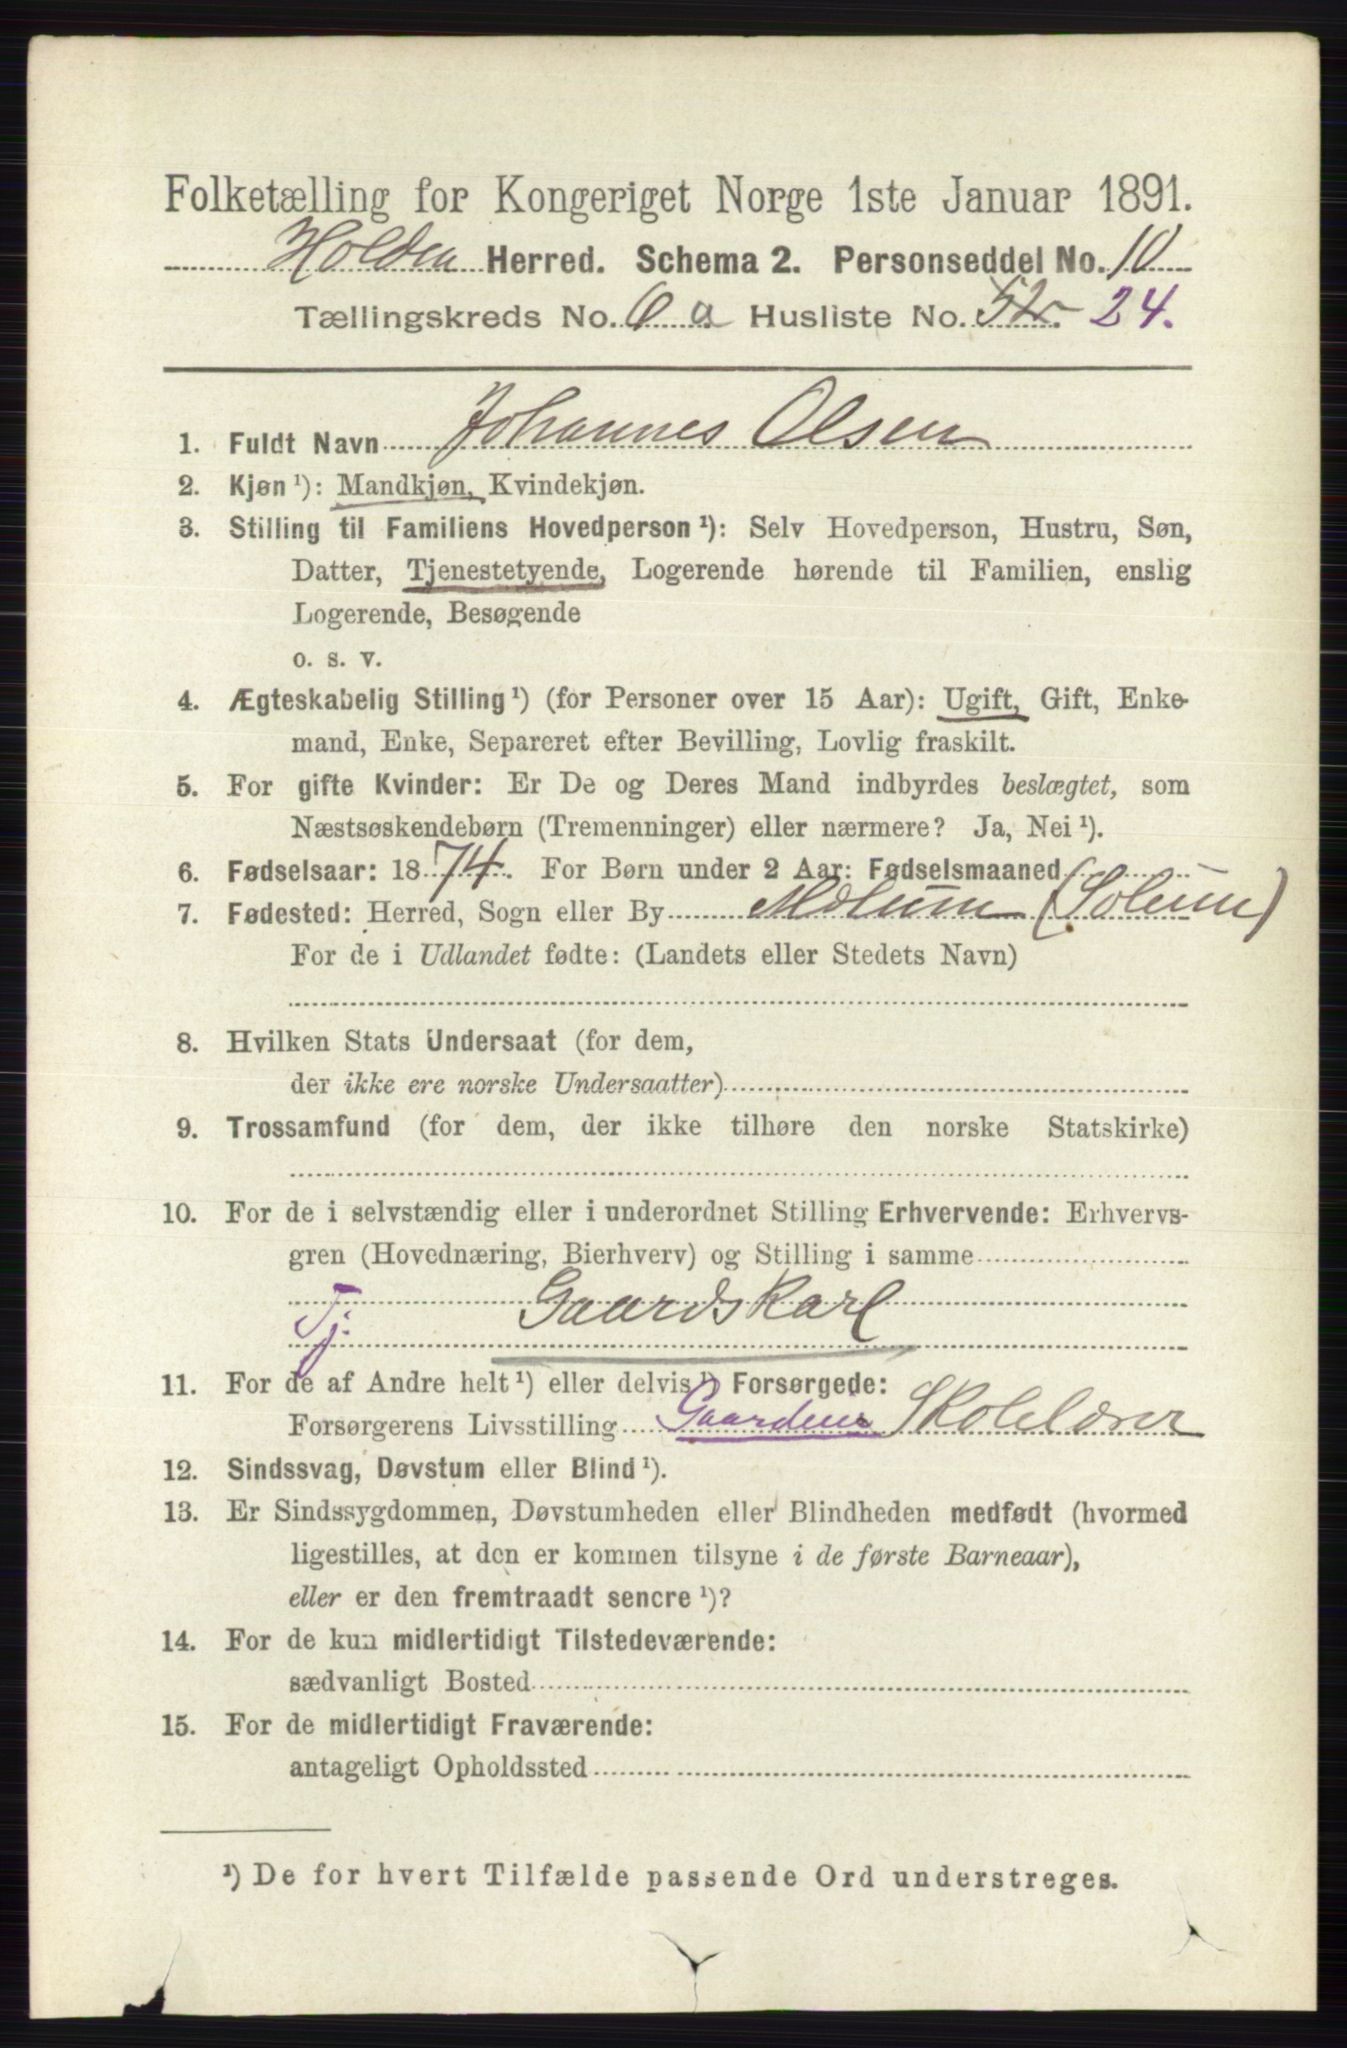 Folketælling for Kongeriget Norge 1ste Januar 1891.
Holden Herred. Schema 2. Personseddel No. 10
Tællingskreds No. 6 a Husliste No. 52. 24.
1. Fuldt Navn Johannes Olsen
2. Kjøn ¹): Mandkjøn, Kvindekjøn.
3. Stilling til Familiens Hovedperson ¹): Selv Hovedperson, Hustru, Søn,
Datter, Tjenestetyende, Logerende hørende til Familien, enslig
Logerende, Besøgende
o. s. v.
4. Ægteskabelig Stilling ¹) (for Personer over 15 Aar): Ugift, Gift, Enke-
mand, Enke, Separeret efter Bevilling, Lovlig fraskilt.
5. For gifte Kvinder: Er De og Deres Mand indbyrdes beslægtet, som
Næstsøskendebørn (Tremenninger) eller nærmere? Ja, Nei ¹).
6. Fødselsaar: 1874. For Børn under 2 Aar: Fødselsmaaned
7. Fødested: Herred, Sogn eller By Mælum (Solum)
For de i Udlandet fødte: (Landets eller Stedets Navn)
8. Hvilken Stats Undersaat (for dem,
der ikke ere norske Undersaatter)
9. Trossamfund (for dem, der ikke tilhøre den norske Statskirke)
10. For de i selvstændig eller i underordnet Stilling Erhvervende: Erhvervs-
gren (Hovednæring, Bierhverv) og Stilling i samme
Tj. Gaardskarl
11. For de af Andre helt ¹) eller delvis ¹) Forsørgede:
Forsørgerens Livsstilling Skolelærer
12. Sindssvag, Døvstum eller Blind ¹).
13. Er Sindssygdommen, Døvstumheden eller Blindheden medfødt (hvormed
ligestilles, at den er kommen tilsyne i de første Barneaar),
eller er den fremtraadt senere ¹)?
14. For de kun midlertidigt Tilstedeværende:
sædvanligt Bosted
15. For de midlertidigt Fraværende:
antageligt Opholdssted
¹) De for hvert Tilfælde passende Ord understreges.